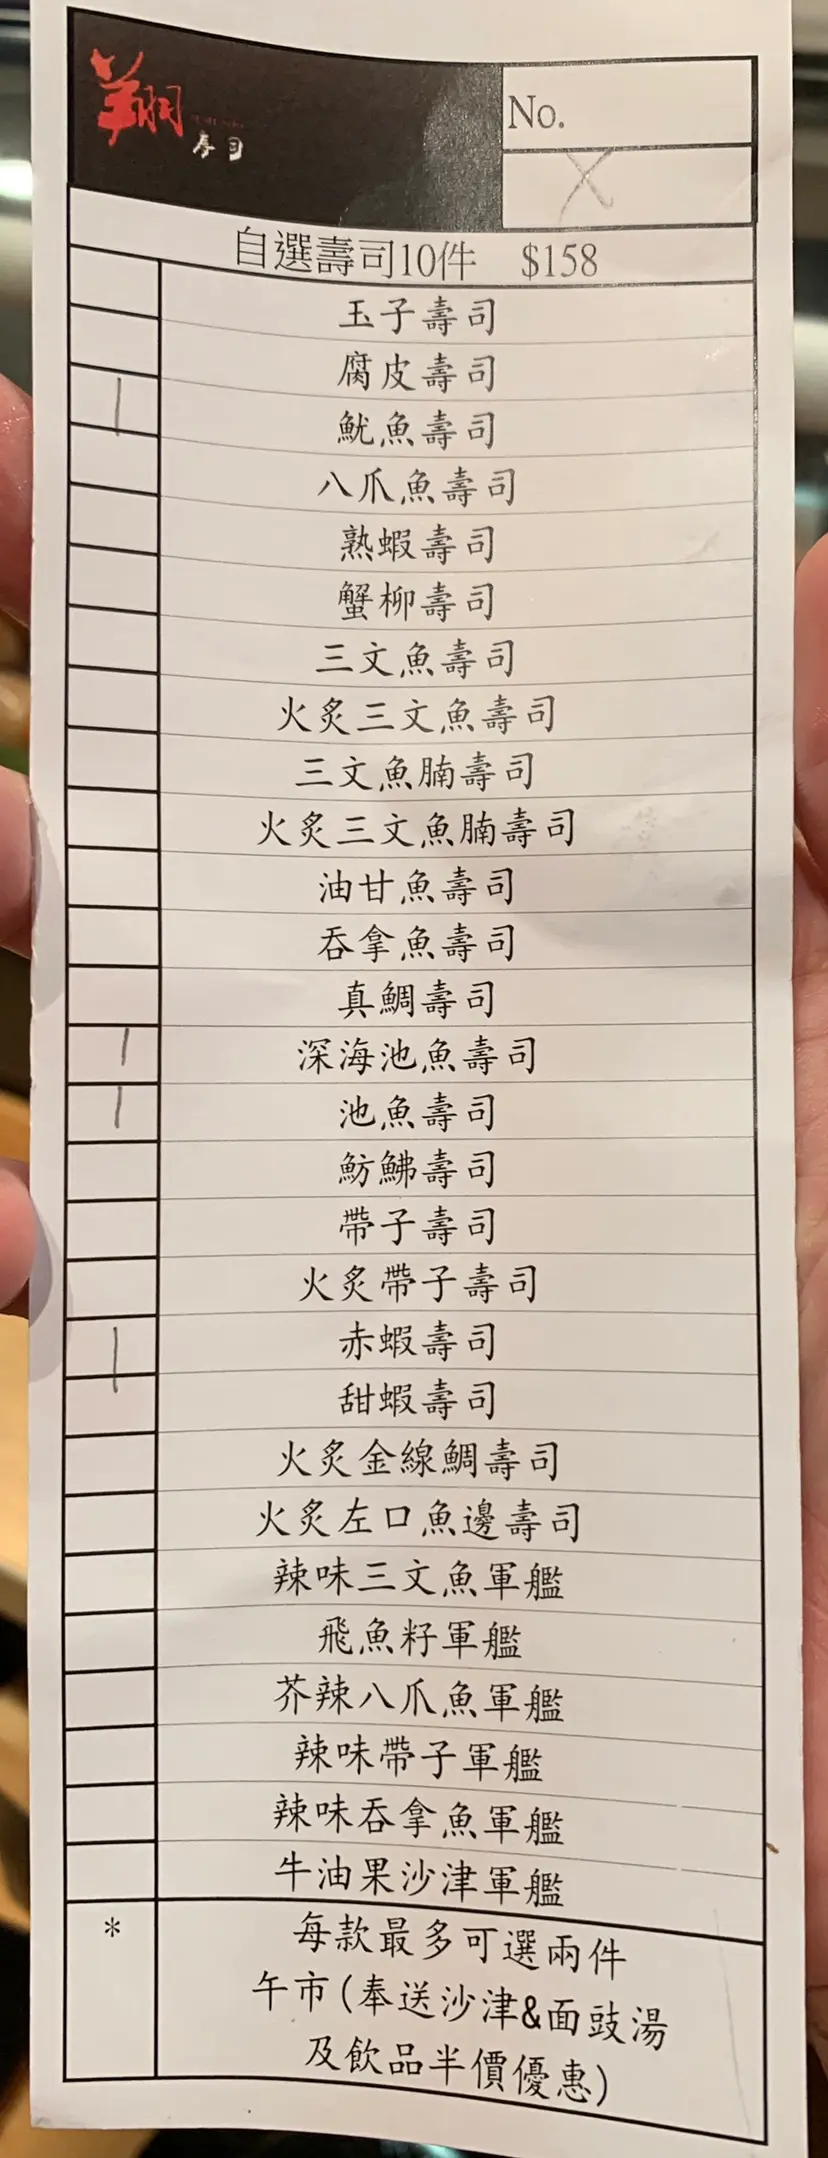 翔
壽司
No.
X
自選壽司10件 $158
玉子壽司
腐皮壽司
1 魷魚壽司
八爪魚壽司
熟蝦壽司
蟹柳壽司
三文魚壽司
火炙三文魚壽司
三文魚腩壽司
火炙三文魚腩壽司
油甘魚壽司
吞拿魚壽司
真鯛壽司
1 深海池魚壽司
1 池魚壽司
魴鮄壽司
帶子壽司
火炙帶子壽司
1 赤蝦壽司
甜蝦壽司
火炙金線鯛壽司
火炙左口魚邊壽司
辣味三文魚軍艦
飛魚籽軍艦
芥辣八爪魚軍艦
辣味帶子軍艦
辣味吞拿魚軍艦
牛油果沙津軍艦
* 每款最多可選兩件
午市(奉送沙津&面豉湯
及飲品半價優惠)